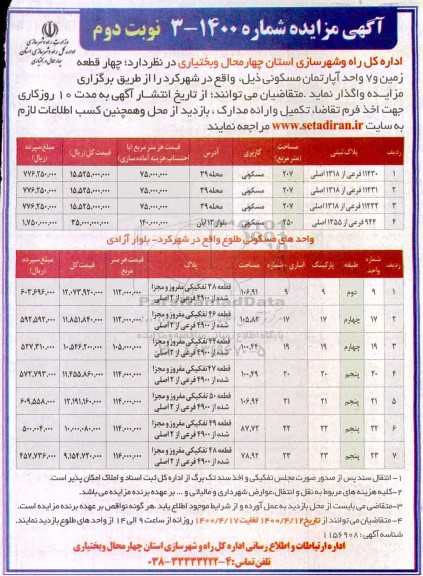 آگهی مزایده شماره ۱۴۰۰-۳ نوبت دوم
وزارت راه و شهرسازی
اداره کل راه و شهرسازی استان
چهارمحال و بختیاری
اداره کل راه وشهرسازی استان چهارمحال وبختیاری در نظردارد: چهار قطعه
زمین و۷ واحد آپارتمان مسکونی ذیل، واقع در شهرکرد را از طریق برگزاری
مزایده واگذار نماید .متقاضیان می توانند: از تاریخ انتشار آگهی به مدت ۱۰ روزکاری
جهت اخذ فرم تقاضا، تکمیل وارائه مدارک ، بازدید از محل وهمچنین کسب اطلاعات لازم
به سایت www.setadiran.ir مراجعه نمایند
ردیف پلاک ثبتی مساحت (متر مربع) کاربری آدرس قیمت هر متر مربع (با احتساب هزینه آماده سازی) قیمت کل(ریال) مبلغ سپرده (ریال)
۱ ۱۱۴۳۰ فرعی از ۱۳۱۸ اصلی ۲۰۷ مسکونی محله ۳۹ ۷۵,۰۰۰,۰۰۰ ۱۵,۵۲۵,۰۰۰,۰۰۰ ۷۷۶,۲۵۰,۰۰۰
۲ ۱۱۴۳۱ فرعی از ۱۳۱۸ اصلی ۲۰۷ مسکونی محله ۳۹ ۷۵,۰۰۰,۰۰۰ ۱۵,۵۲۵,۰۰۰,۰۰۰ ۷۷۶,۲۵۰,۰۰۰
۳ ۱۱۴۳۲ فرعی از ۱۳۱۸ اصلی ۲۰۷ مسکونی محله ۳۹ ۷۵,۰۰۰,۰۰۰ ۱۵,۵۲۵,۰۰۰,۰۰۰ ۷۷۶,۲۵۰,۰۰۰
۴ ۹۴۴ فرعی از ۱۲۵۵ اصلی ۲۵۰ مسکونی بلوار ۱۳ آبان ۱۴۰,۰۰۰,۰۰۰ ۳۵,۰۰۰,۰۰۰,۰۰۰ ۱,۷۵۰,۰۰۰,۰۰۰
واحد های مسکونی طلوع واقع در شهرکرد- بلوار آزادی
ردیف شماره واحد طبقه پارکینگ انباری -شماره مساحت پلاک قیمت هر متر مربع قیمت کل مبلغ سپرده (ریال)
۱ ۹ دوم ۹ ۹ ۱۰۶.۹۱ قطعه ۳۸ تفکیکی مفروز و مجزا شده از ۴۹۰۰ فرعی از ۲ اصلی ۱۱۲,۰۰۰,۰۰۰ ۱۲,۰۷۳,۹۲۰,۰۰۰ ۶۰۳,۶۹۶,۰۰۰
۲ ۱۷ چهارم ۱۷ ۱۷ ۱۰۵.۸۲ قطعه ۴۶ تفکیکی مفروز و مجزا شده از ۴۹۰۰ فرعی از ۲ اصلی ۱۱۲,۰۰۰,۰۰۰ ۱۱,۸۵۱,۸۴۰,۰۰۰ ۵۹۲,۵۹۲,۰۰۰
۳ ۱۹ چهارم ۱۹ ۱۹ ۱۰۰.۴۴ قطعه ۴۴ تفکیکی مفروز و مجزا شده از ۴۹۰۰ فرعی از ۲ اصلی ۱۰۵,۰۰۰,۰۰۰ ۱۰,۵۴۶,۲۰۰,۰۰۰ ۵۲۷,۳۱۰,۰۰۰
۴ ۲۰ پنجم ۲۰ ۲۰ ۱۰۰.۴۹ قطعه ۴۷ تفکیکی مفروز و مجزا شده از ۴۹۰۰ فرعی از ۲ اصلی ۱۱۴,۰۰۰,۰۰۰ ۱۱,۴۵۵,۸۶۰,۰۰۰ ۵۷۲,۷۹۳,۰۰۰
۵ ۲۱ پنجم ۲۱ ۲۱ ۱۰۶.۹۴ قطعه ۵۰ تفکیکی مفروز و مجزا شده از ۴۹۰۰ فرعی از ۲ اصلی ۱۱۴,۰۰۰,۰۰۰ ۱۲,۱۹۱,۱۶۰,۰۰۰ ۶۰۹,۵۵۸,۰۰۰
۶ ۲۲ پنجم ۲۲ ۲۲ ۸۷.۷۲ قطعه ۴۹ تفکیکی مفروز و مجزا شده از ۴۹۰۰ فرعی از ۲ اصلی ۱۱۴,۰۰۰,۰۰۰ ۱۰,۰۰۰,۰۸۰,۰۰۰ ۵۰۰,۰۰۴,۰۰۰
۷ ۲۳ پنجم ۲۳ ۲۳ ۷۸.۹۲ قطعه ۴۸ تفکیکی مفروز و مجزا شده از ۴۹۰۰ فرعی از ۲ اصلی ۱۱۶,۰۰۰,۰۰۰ ۹,۱۵۴,۷۲۰,۰۰۰ ۴۵۷,۷۳۶,۰۰۰
۱- انتقال سند پس از صدور صورت مجلس تفکیکی و اخذ سند تک برگ از اداره کل ثبت اسناد و املاک امکان پذیر است.
۲-کلیه هزینه های مربوط به نقل و انتقال،عوارض شهرداری و مالیاتی و ... بر عهده برنده مزایده می باشد.
۳-متقاضی می بایست از محل بازدید به عمل آورده و از شرایط موجود اطلاع یابد .هر گونه نواقص بر عهده برنده مزایده است.
۴-متقاضیان می توانند از تاریخ ۱۴۰۰/۴/۱۲ لغایت ۱۴۰۰/۴/۱۷ روزانه از ساعت ۹ الی ۱۴ از واحد های طلوع بازدید نمایند.
شناسه آگهی: ۱۱۵۶۹۰۸
اداره ارتباطات و اطلاع رسانی اداره کل راه و شهرسازی استان چهارمحال وبختیاری
تلفن تماس:۴-۳۳۳۳۳۲۲۲-۰۳۸